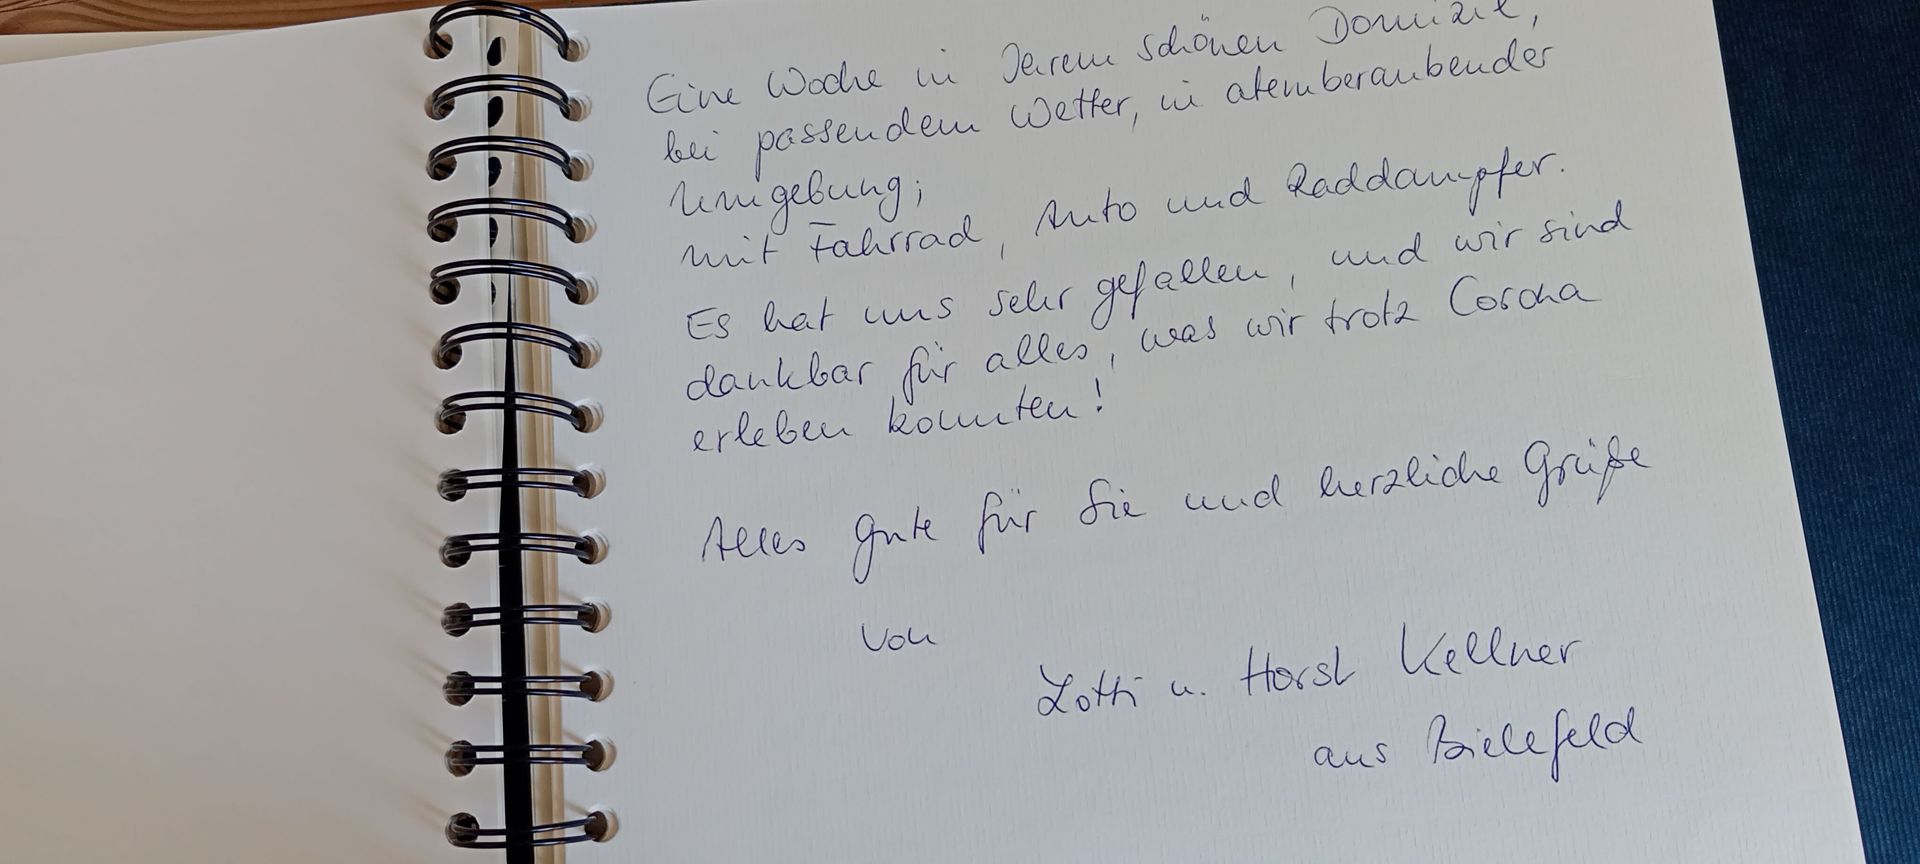 Eine Woche in Ihrem schönen Domizil,
bei passendem Wetter, in atemberaubender
Umgebung;
mit Fahrrad, Auto und Raddampfer.
Es hat uns sehr gefallen, und wir sind
dankbar für alles, was wir trotz Corona
erleben konnten!
Alles Gute für Sie und herzliche Grüße
von
Lotti u. Horst Kellner
aus Bielefeld